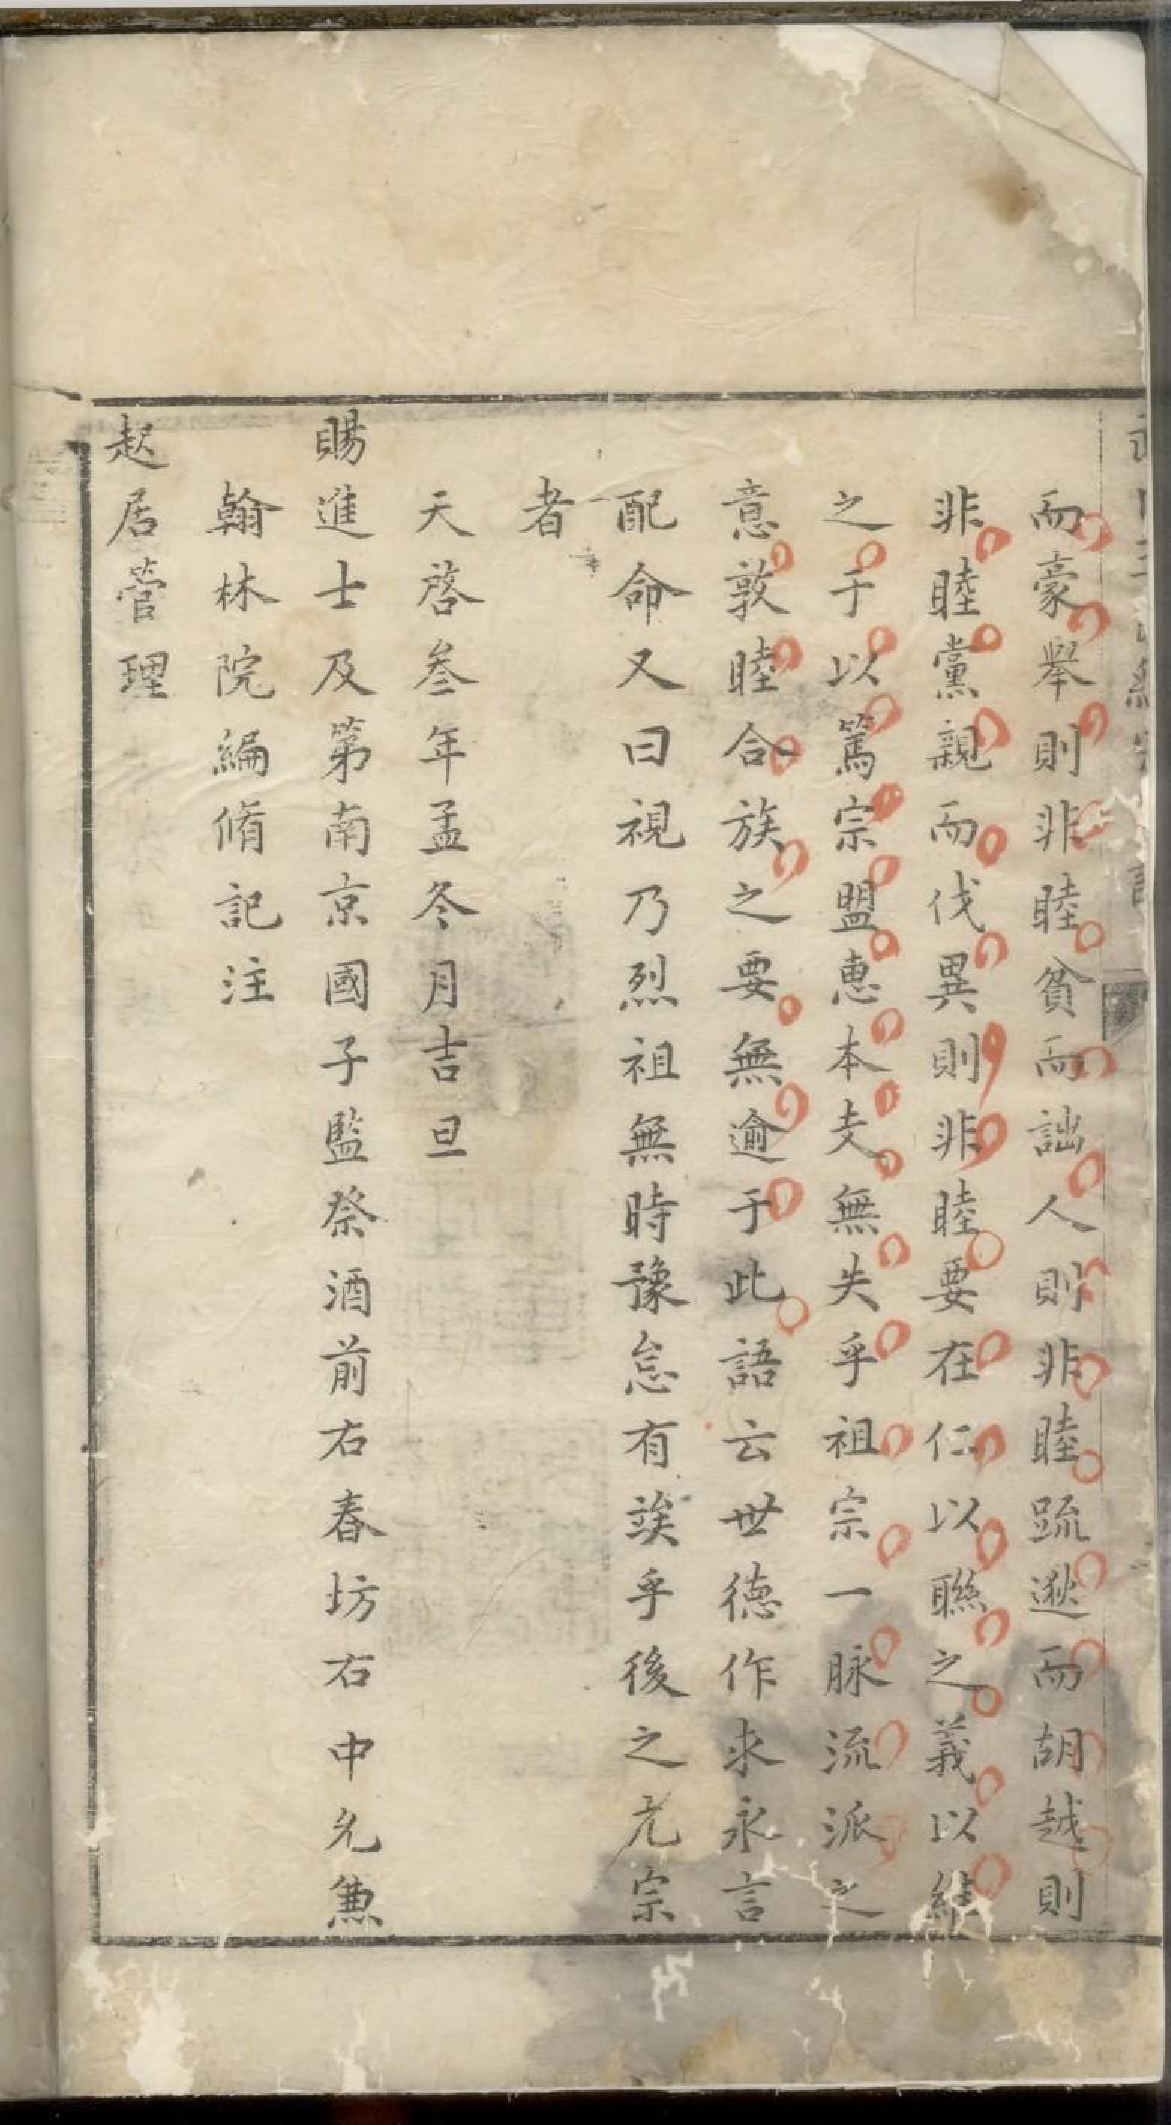 而豪舉則非睦貧而詘人則非睦䟽逖而胡越則
非睦黨親而伐異則非睦要在仁以聯之義以維
之于以篤宗盟惠本支無失乎祖宗一脉流派之
意敦睦合族之要無逾于此語云世德作求永言
配命又曰視乃烈祖無時豫怠有竢乎後之亢宗
者
天啓叁年孟冬月吉旦
賜進士及第南京國子監祭酒前右春坊右中允兼
翰林院編脩記注
起居管理